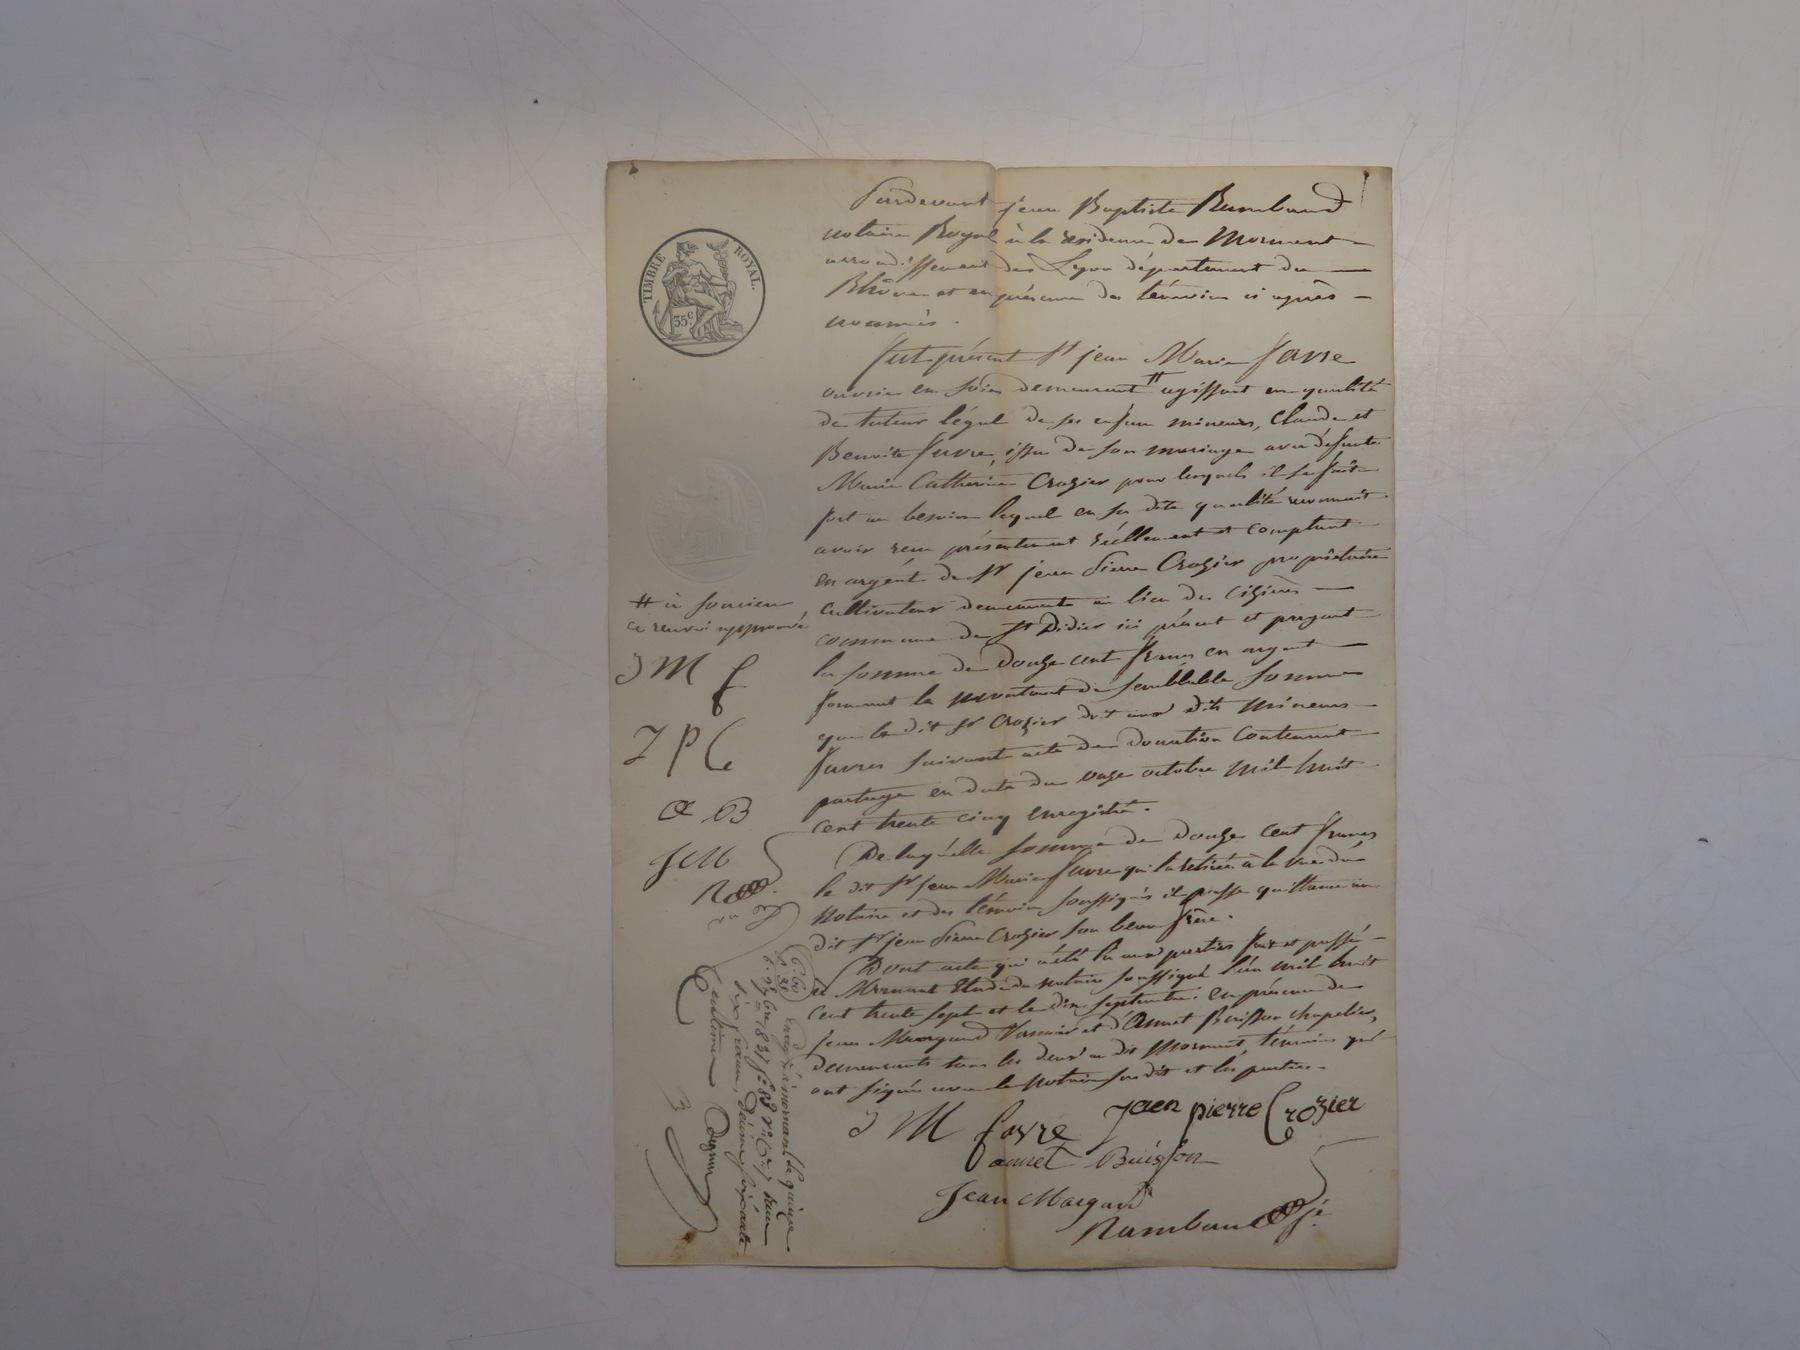 TIMBRE ROYAL.
35 c
Pardevant jean Baptiste Rambaud
notaire Royal à la residence de Mornant
arrondissement de Lyon département du
Rhône et en présence des témoins ci après
nommés.
fut présent Sr jean Marie favre
ouvrier en soie demeurant # agissant en qualité
de tuteur légal de ses enfans mineurs, Claude et
Benoite favre, issu de son mariage avec défunte
Marie Catherine Crozier pour lesquels il se fait
fort au besoin lequel en sa dite qualité reconnait
avoir reçu présentement réellement et comptant
en argent de Sr jean Pierre Crozier propriétaire
cultivateur demeurant au lieu des
commune de St Didier ici présent et payant
la somme de douze cent francs en argent
formant le montant de semblable somme
que le dit Sr Crozier doit aux dits mineurs
favres suivant acte de donation contenant
partage en date du onze octobre mil huit
cent trente cinq enregistré.
De laquelle somme de douze cent francs
le dit Sr jean Marie favre qui l'a retirée à la vue du
notaire et des témoins soussignés il passe quittance au
dit Sr jean Pierre Crozier son beau frère.
Dont acte qui a été lu aux parties fait et passé
à Mornant Etude du notaire soussigné l'an mil huit
cent trente sept et le dix septembre. en présence de
jean Margand vannier et d'Annet Buisson chapelier,
demeurants tous les deux au dit Mornant, témoins qui
ont signés avec le notaire susdit et les parties.
# à
ce renvoi approuvé
J M f
J P C
a B
J M
R
J M favre
Jaen pierre Crozier
annet Buisson
Jean Margand
Rambaud
6.60
enregt. à mornant le quinze
7bre 1837
six francs, décime soixante
centimes